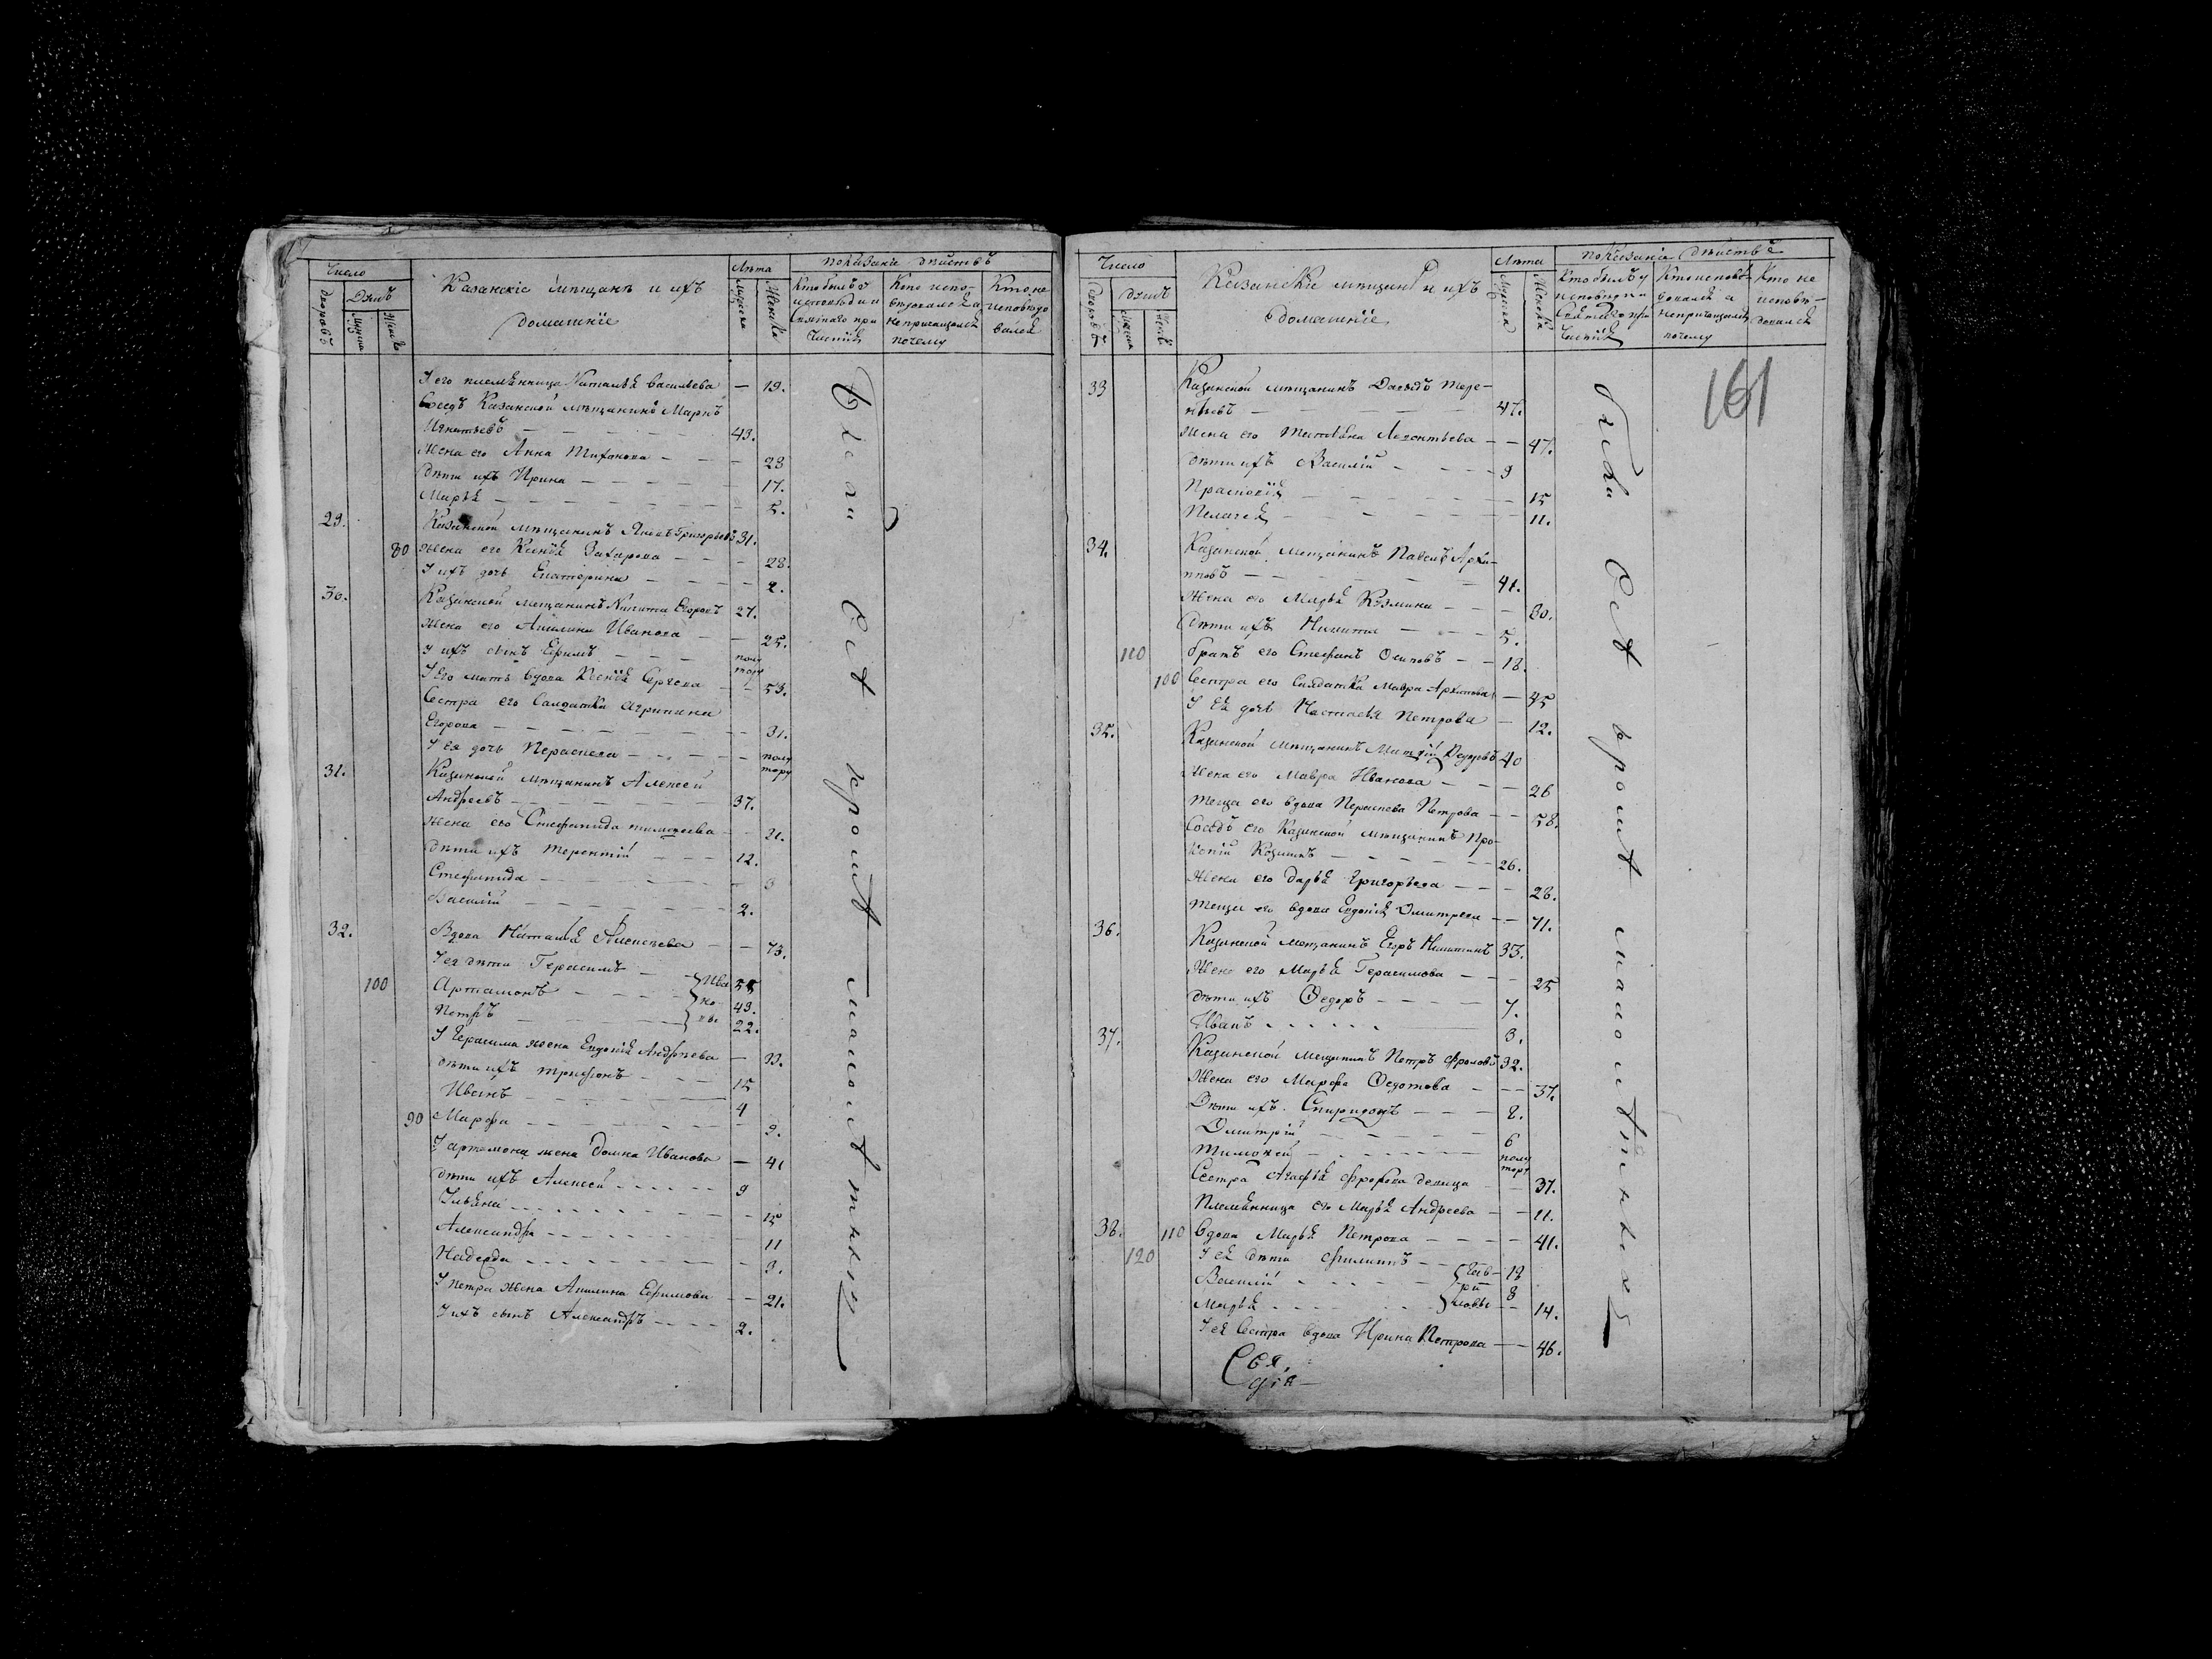 Число
Лѣта
показаніе дѣйствъ
дворовъ
душъ
Казанскіе мѣщанѣ и ихъ
домашніе
мужска
женска
Кто былъ у
исповѣди и
святаго при
частія
Кто испо-
вѣдовался а
не причащался
почему
Кто не
исповѣдо
вался
И его племѣнница Наталья Васильева — 19.
Соседъ Казанской мѣщанинъ Маркъ
Игнатьевъ 43.
Жена его Анна Тихонова 28
Дѣти ихъ Ирина 17.
Марья 5.
29. Казанской мѣщанинъ Яковъ Григорьевъ 31.
80 Жена его Ксенія Захарова 28.
И ихъ дочь Екатерина 2.
30. Казанской мещанинъ Никита Егоровъ 27.
Жена его Акилина Иванова 25.
И ихъ сынъ Ефимъ полу
тору
И Его мать вдова Ксенія Сергеева 53.
Сестра его Салдатка Агрипина
Егорова 31.
И ея дочь Параскева полу
тору
31. Казанской мѣщанинъ Алексей
Андреевъ 37.
Жена его Стефанида Тимофеева 21.
Дѣти ихъ Терентій 12.
Стефанида 9
Василій 2.
32. Вдова Наталья Алексеева 73.
И ея дѣти Герасимъ Ива 55
100 Артамонъ но 43.
Петръ вы 22.
У Герасима жена Евдокія Андреева 33.
Дѣти ихъ Трифонъ 15
Иванъ 4
90 Марфа 9.
У Артамона жена Домна Иванова 41
Дѣти ихъ Алексей 9
Ульяна 15
Александра 11
Надежда 3.
У Петра жена Акилина Ефимова 21.
У ихъ сынъ Александръ 2.
всѣ кромѣ малолѣтныхъ
Число
Лѣта
показаніе дѣйствъ
дворовъ
душъ
Казанскіе мѣщанѣ и ихъ
домашніе
мужска
женска
Кто былъ у
исповѣди и
Святаго при
частія
Кто исповѣ-
довался а
не причащался
почему
Кто не
исповѣ-
довался
161
33 Казанской мѣщанинъ Давыдъ Тере-
нтьевъ 47.
Жена его Татьяна Леонтьева 47.
Дѣти ихъ Василій 9
Прасковія 15
Пелагея 11.
34. Казанской мещанинъ Павелъ Архи-
повъ 41.
Жена его Марья Козмина 30.
Дѣти ихъ Никита 5.
110 братъ его Стефанъ Осиповъ 18.
100 Сестра его Салдатка Мавра Архипова 45
И Ея дочь Настасья Петрова 12.
35. Казанской мѣщанинъ Федоровъ 40
Жена его Мавра Иванова 26
Теща его вдова Параскева Петрова 58.
Соседъ его Казанской мѣщанинъ Про-
копій Козминъ 26.
Жена его Дарья Григорьева 28.
Теща его вдова Евдокія Дмитрева 71.
36. Казанской мещанинъ Егоръ Никитинъ 33.
Жена его Марья Герасимова 25
Дѣти ихъ Федоръ 7.
Иванъ 3.
37. Казанской мещанинъ Петръ Фроловъ 32.
Жена его Марфа Федотова 37.
Дѣти ихъ Спиридонъ 8.
Дмитрій 6
Тимофей полу
тору
Сестра Агафья Фролова девица 37.
Племянница его Марья Андреева 11.
38. 110 Вдова Марья Петрова 41.
120 И ея дѣти Филиппъ Гав- 18
Василій ри 8
Марья ловы 14.
И ея Сестра вдова Ирина Петрова 46.
всѣ кромѣ малолѣтныхъ